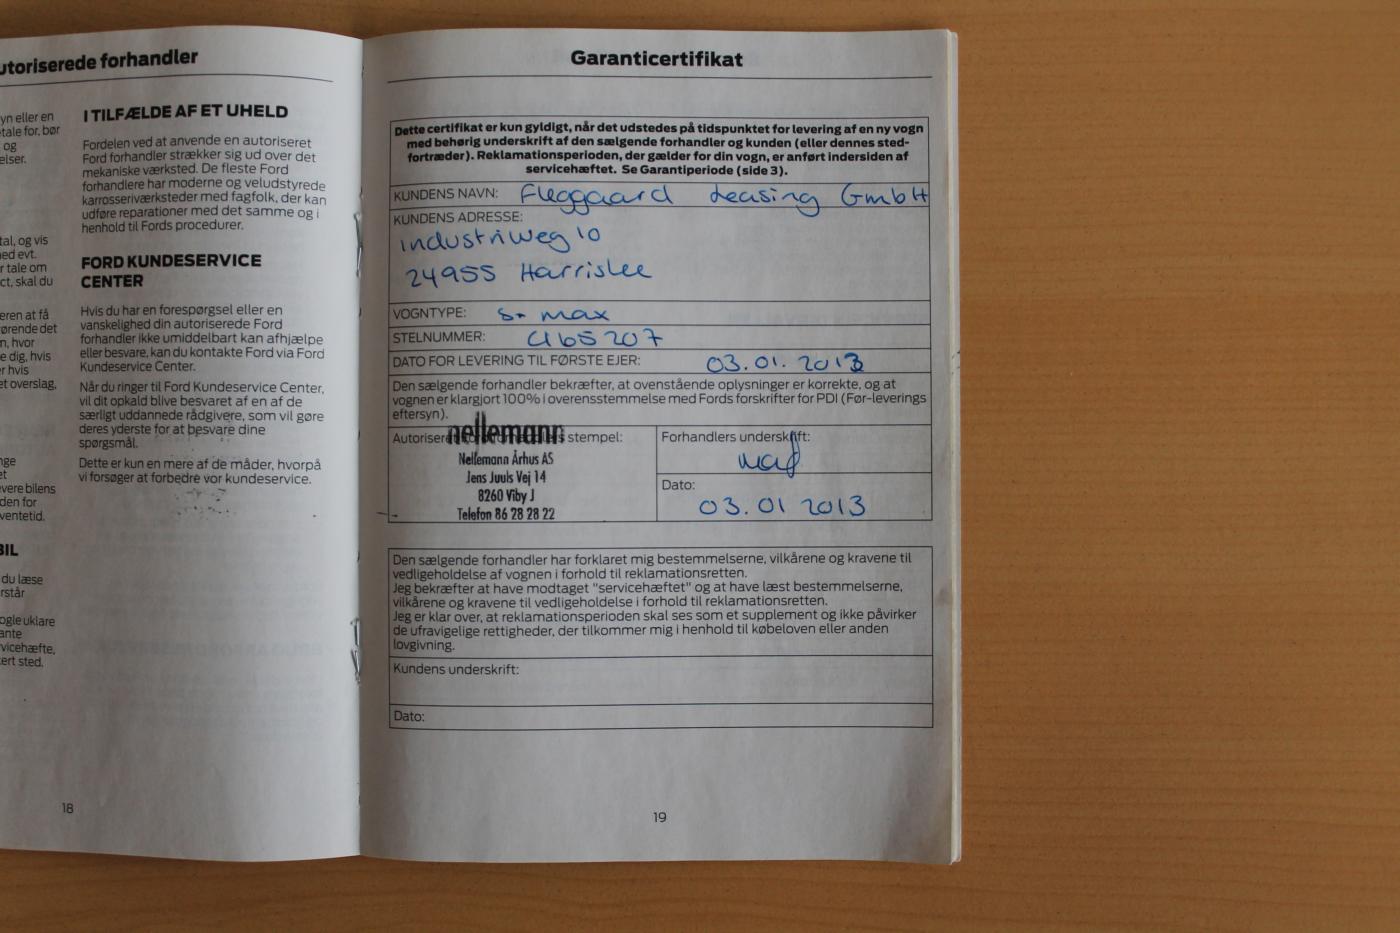 utoriserede forhandler
yn eller en
tale for, bør
og
elser.
tal, og vis
ned evt.
r tale om
ct, skal du
eren at få
ørende det
n, hvor
e dig, hvis
r hvis
et overslag,
nge
et
vere bilens
den for
ventetid.
BIL
du læse
rstår
ogle uklare
ante
vicehæfte,
cert sted.
I TILFÆLDE AF ET UHELD
Fordelen ved at anvende en autoriseret
Ford forhandler strækker sig ud over det
mekaniske værksted. De fleste Ford
forhandlere har moderne og veludstyrede
karrosseriværksteder med fagfolk, der kan
udføre reparationer med det samme og i
henhold til Fords procedurer.
FORD KUNDESERVICE
CENTER
Hvis du har en forespørgsel eller en
vanskelighed din autoriserede Ford
forhandler ikke umiddelbart kan afhjælpe
eller besvare, kan du kontakte Ford via Ford
Kundeservice Center.
Når du ringer til Ford Kundeservice Center,
vil dit opkald blive besvaret af en af de
særligt uddannede rådgivere, som vil gøre
deres yderste for at besvare dine
spørgsmål.
Dette er kun en mere af de måder, hvorpå
vi forsøger at forbedre vor kundeservice.
18
Garanticertifikat
Dette certifikat er kun gyldigt, når det udstedes på tidspunktet for levering af en ny vogn
med behørig underskrift af den sælgende forhandler og kunden (eller dennes sted-
fortræder). Reklamationsperioden, der gælder for din vogn, er anført indersiden af
servicehæftet. Se Garantiperiode (side 3).
KUNDENS NAVN: Fleggaard Leasing GmbH
KUNDENS ADRESSE:
industriweg 10
24955 Harrislee
VOGNTYPE: S-max
STELNUMMER: CU65207
DATO FOR LEVERING TIL FØRSTE EJER: 03.01.2013
Den sælgende forhandler bekræfter, at ovenstående oplysninger er korrekte, og at
vognen er klargjort 100% i overensstemmelse med Fords forskrifter for PDI (Før-leverings
eftersyn).
Autoriseret stempel:
nellemann
Nellemann Århus AS
Jens Juuls Vej 14
8260 Viby J
Telefon 86 28 28 22
Forhandlers underskrift:
Dato:
03.01 2013
Den sælgende forhandler har forklaret mig bestemmelserne, vilkårene og kravene til
vedligeholdelse af vognen i forhold til reklamationsretten.
Jeg bekræfter at have modtaget "servicehæftet" og at have læst bestemmelserne,
vilkårene og kravene til vedligeholdelse i forhold til reklamationsretten.
Jeg er klar over, at reklamationsperioden skal ses som et supplement og ikke påvirker
de ufravigelige rettigheder, der tilkommer mig i henhold til købeloven eller anden
lovgivning.
Kundens underskrift:
Dato:
19